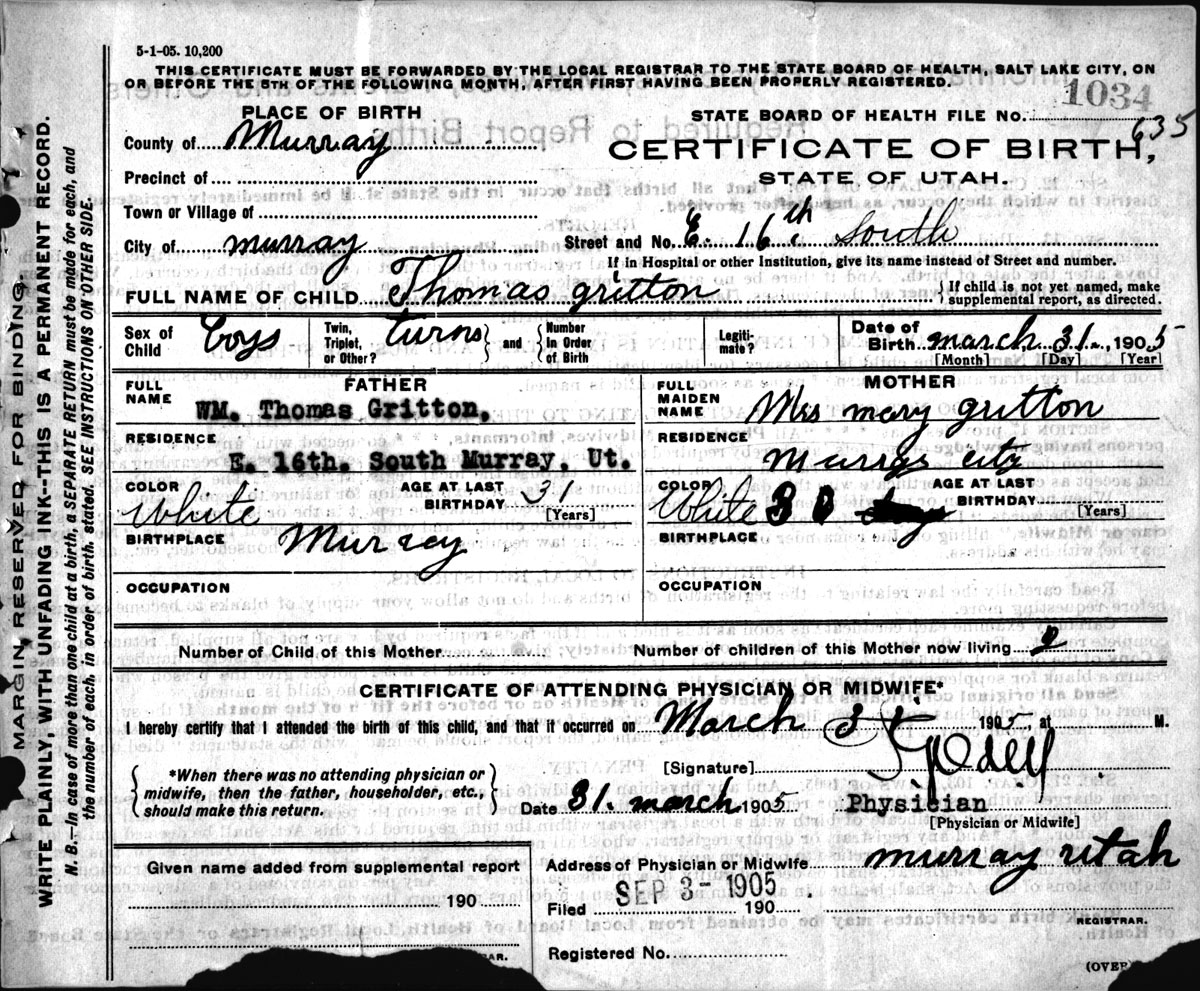 5-1-05. 10,200
THIS CERTIFICATE MUST BE FORWARDED BY THE LOCAL REGISTRAR TO THE STATE BOARD OF HEALTH, SALT LAKE CITY, ON
OR BEFORE THE 5TH OF THE FOLLOWING MONTH, AFTER FIRST HAVING BEEN PROPERLY REGISTERED.
PLACE OF BIRTH
STATE BOARD OF HEALTH FILE NO. 1034
635
County of Murray
CERTIFICATE OF BIRTH,
STATE OF UTAH.
Precinct of
Town or Village of
City of murray
Street and No. E. 16th South
If in Hospital or other Institution, give its name instead of Street and number.
FULL NAME OF CHILD Thomas gritton
{ If child is not yet named, make supplemental report, as directed.
Sex of Child Boys
Twin, Triplet, or Other? twins } and { Number In Order of Birth
Legiti-mate?
Date of Birth march 31 1905
[Month] [Day] [Year]
FATHER
FULL NAME WM. Thomas Gritton.
RESIDENCE
E. 16th. South Murray, Ut.
COLOR White
AGE AT LAST BIRTHDAY 31
[Years]
BIRTHPLACE Murray
OCCUPATION
MOTHER
FULL MAIDEN NAME Mrs mary gritton
RESIDENCE
COLOR White
AGE AT LAST BIRTHDAY 30
[Years]
BIRTHPLACE
OCCUPATION
Number of Child of this Mother
Number of children of this Mother now living 2
CERTIFICATE OF ATTENDING PHYSICIAN OR MIDWIFE*
I hereby certify that I attended the birth of this child, and that it occurred on March 31 1905 at M.
{ *When there was no attending physician or midwife, then the father, householder, etc., should make this return. }
[Signature]
Date 31. march 1905
Physician
[Physician or Midwife]
Given name added from supplemental report
190
Address of Physician or Midwife murray utah
SEP 3- 1905
Filed 190
REGISTRAR.
Registered No.
(OVER
MARGIN RESERVED FOR BINDING.
WRITE PLAINLY, WITH UNFADING INK--THIS IS A PERMANENT RECORD.
N. B.--In case of more than one child at a birth, a SEPARATE RETURN must be made for each, and
the number of each, in order of birth, stated. SEE INSTRUCTIONS ON OTHER SIDE.